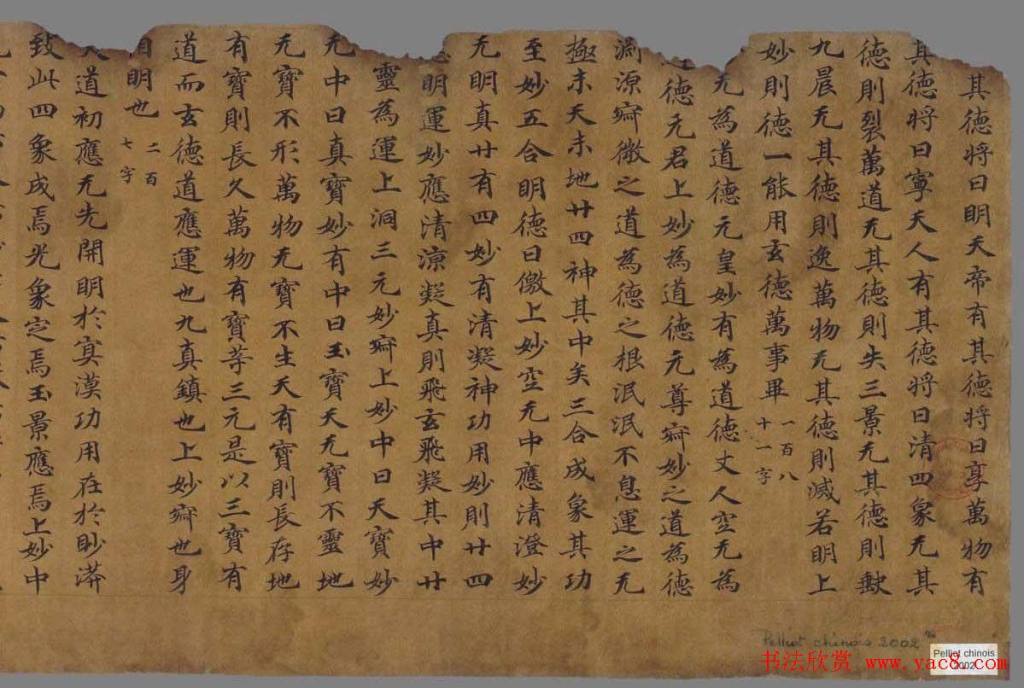 其德將曰明天帝有其德將曰享萬物有
其德將曰寧天人有其德將曰清四象无其
德則裂萬道无其德則失三景无其德則
九晨无其德則逸萬物无其德則滅若明上
妙則德一能用玄德萬事畢 一百八十一字
无為道德元皇妙有為道德丈人空无為
德元君上妙為道德元尊㝷妙之道為德
淵源㝷微之道為德之根泯泯不息運之无
極未天未地廿四神其中矣三合成象其功
至妙五合明德曰儌上妙空无中應清澄妙
无明真廿有四妙有清凝神功用妙則廿四
明運妙應清凉凝真則飛玄飛凝其中廿
靈為運上洞三元妙㝷上妙中曰天寶妙
无中曰真寶妙有中曰玉寶天无寶不靈地
无寶不形萬物无寶不生天有寶則長存地
有寶則長久萬物有寶等三元是以三寶有
道而玄德道應運也九真鎮也上妙㝷也身
明也 二百七字
道初應无先開明於寘漠功用在於眇漭
致此四象成焉光象定焉玉景應焉上妙中
Pelliot chinois 2002
Pelliot chinois
2002
书法欣赏 www.yac8.com